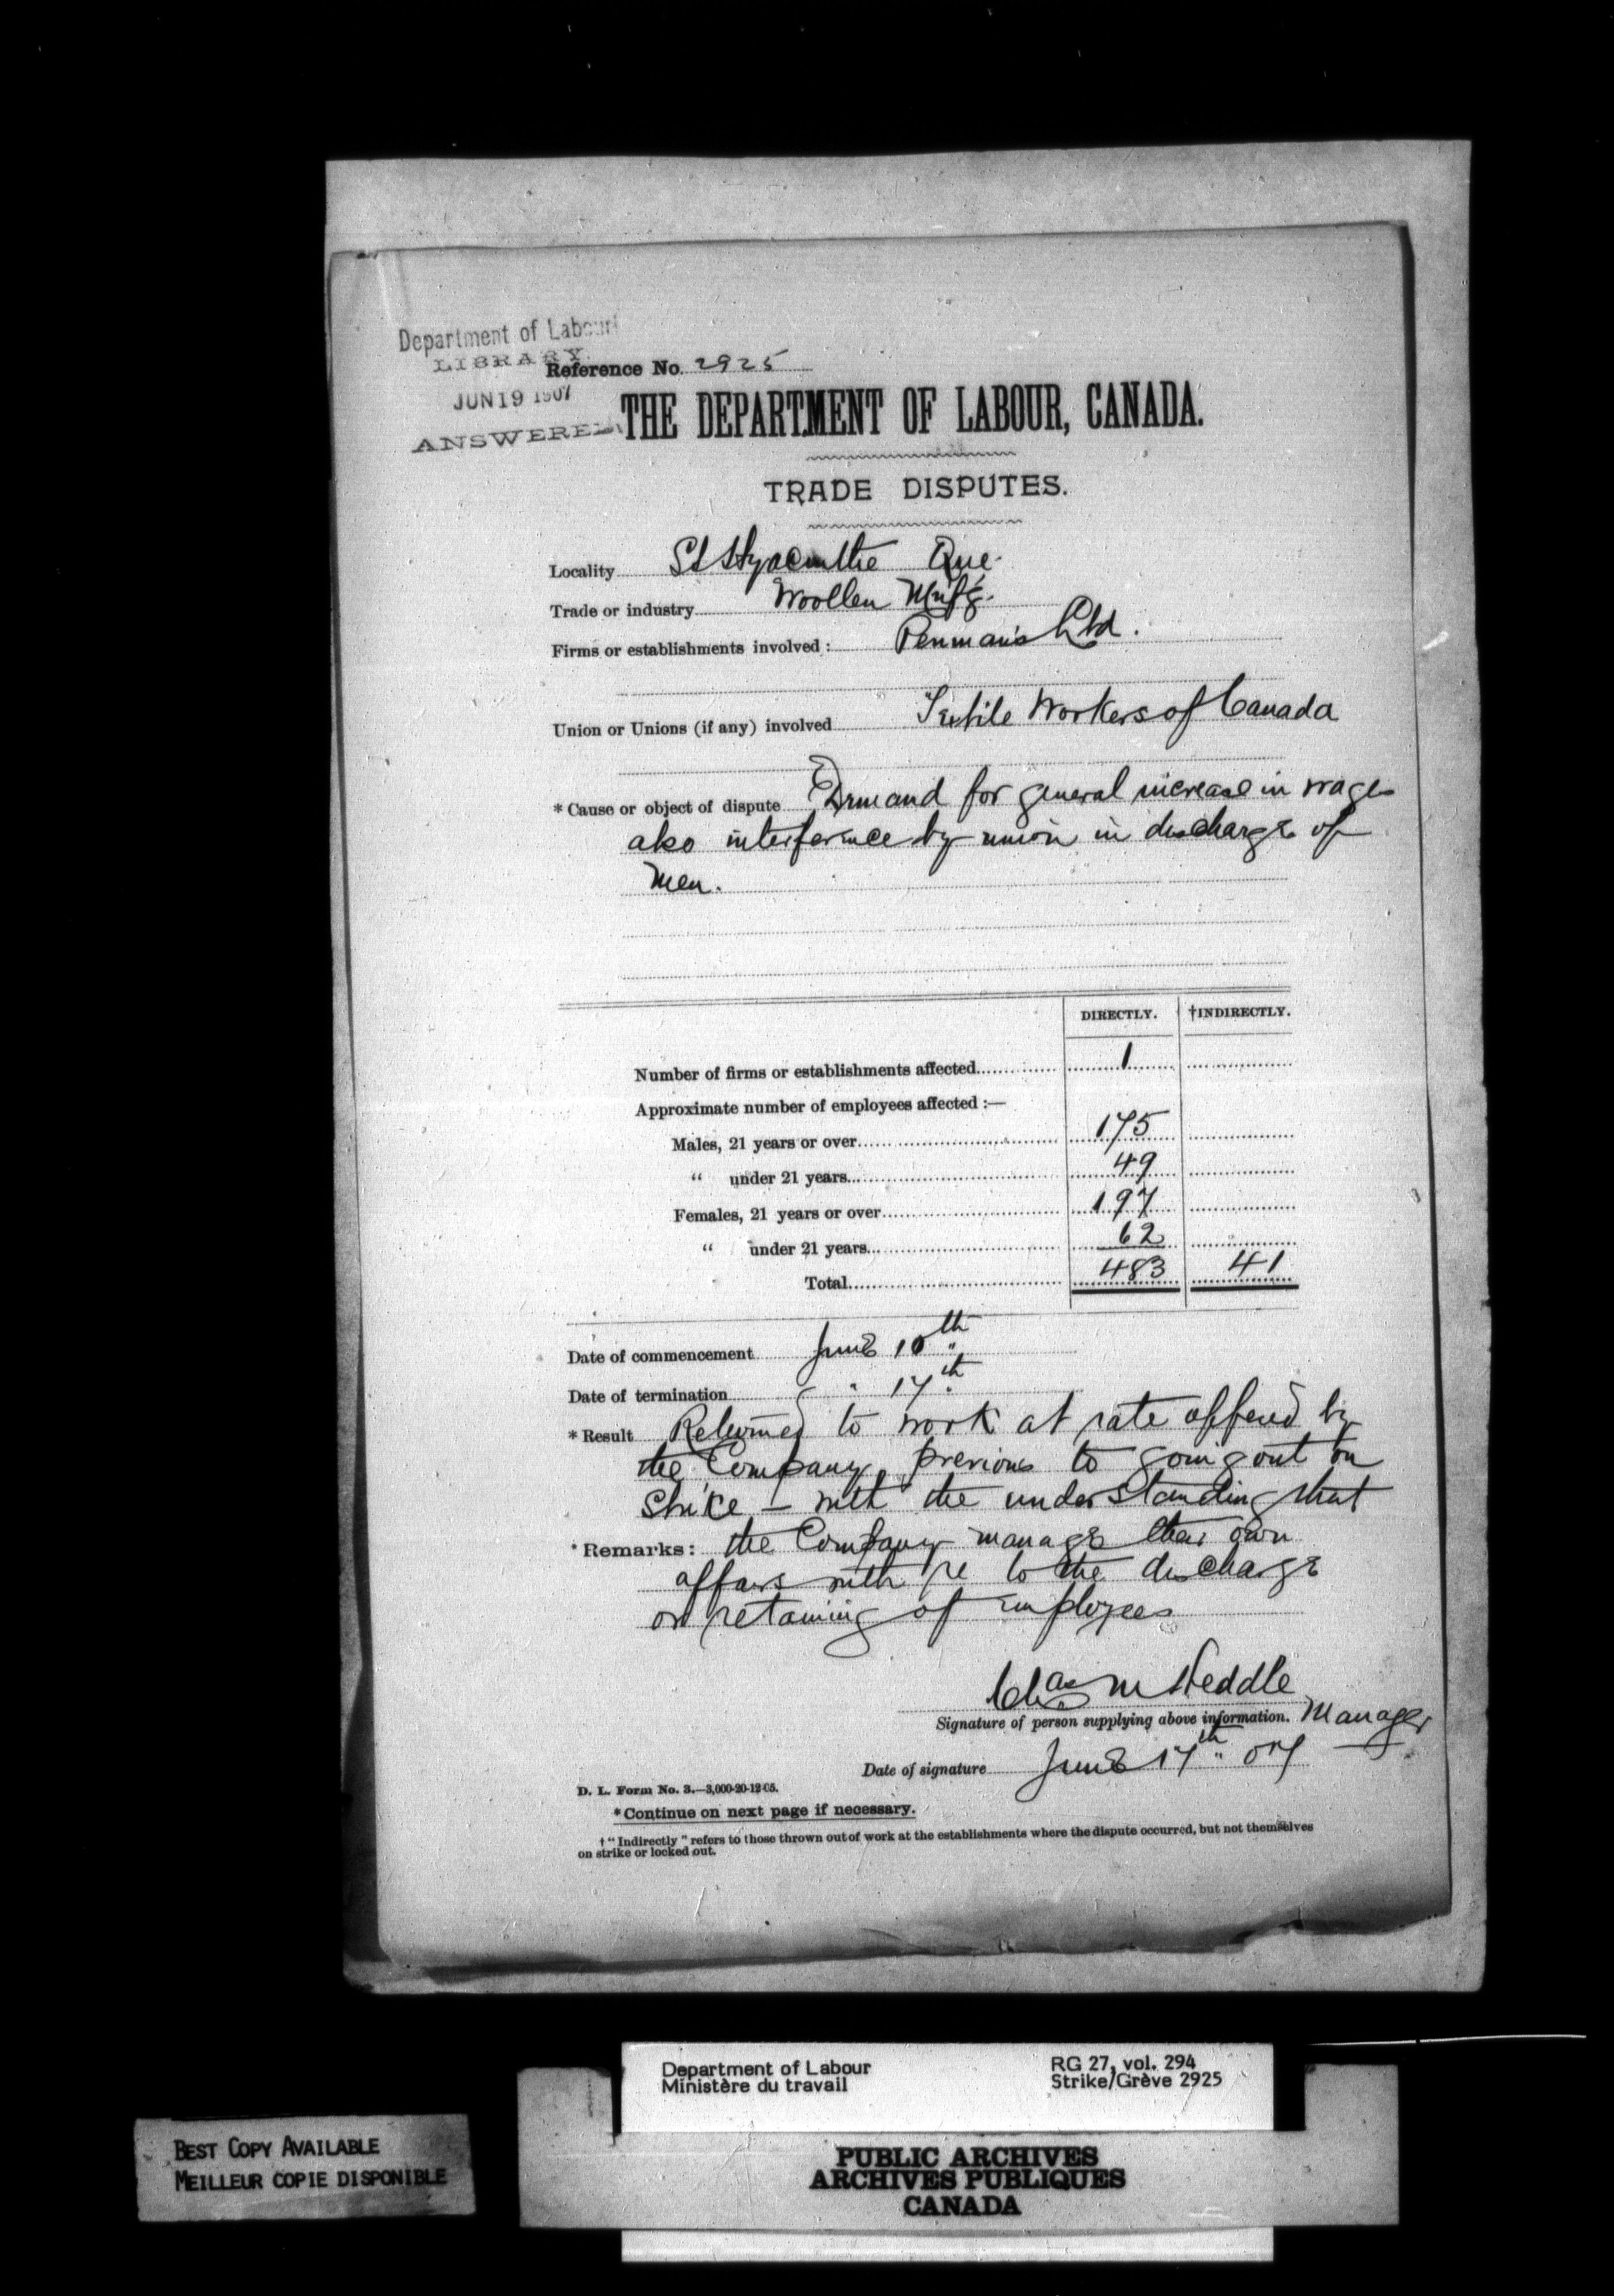 Department of Labour
LIBRARY
Reference No. 2925
JUN 19 1907
ANSWERED
THE DEPARTMENT OF LABOUR, CANADA.
TRADE DISPUTES.
Locality St Hyacinthe Que.
Trade or industry Woollen Mnf'g.
Firms or establishments involved : Penman's Ltd.
Union or Unions (if any) involved Textile Workers of Canada
* Cause or object of dispute Demand for general increase in wages
also interference by union in discharge of
men.
DIRECTLY. †INDIRECTLY.
Number of firms or establishments affected 1
Approximate number of employees affected :—
Males, 21 years or over 175
“ under 21 years 49
Females, 21 years or over 197
“ under 21 years 62
Total 483 41
Date of commencement June 10th
Date of termination " 17th
* Result Returned to work at rate offered by
the Company previous to going out on
strike — with the understanding that
* Remarks: the Company manage their own
affairs with re to the discharge
or retaining of employees
Chas M Heddle
Signature of person supplying above information. Manager
Date of signature June 17th 07
D. L. Form No. 3.—3,000-20-12-05.
* Continue on next page if necessary.
† “ Indirectly ” refers to those thrown out of work at the establishments where the dispute occurred, but not themselves
on strike or locked out.
Department of Labour RG 27, vol. 294
Ministère du travail Strike/Grève 2925
BEST COPY AVAILABLE
MEILLEUR COPIE DISPONIBLE
PUBLIC ARCHIVES
ARCHIVES PUBLIQUES
CANADA